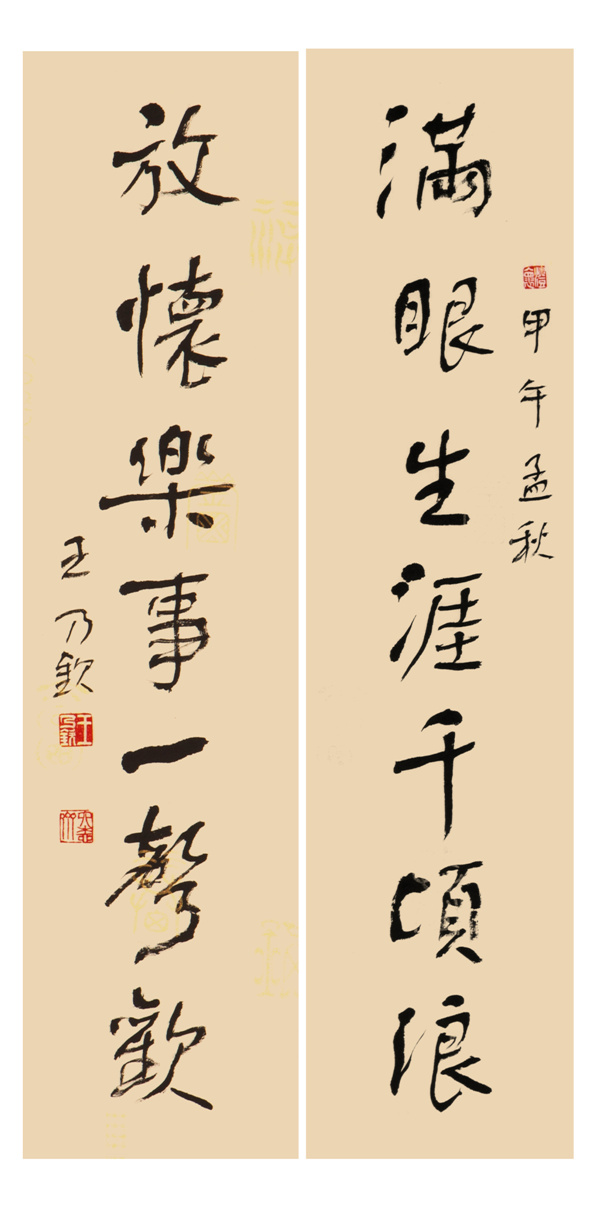 甲午孟秋
滿眼生涯千頃浪
放懷樂事一聲歡
王乃欽
王乃欽